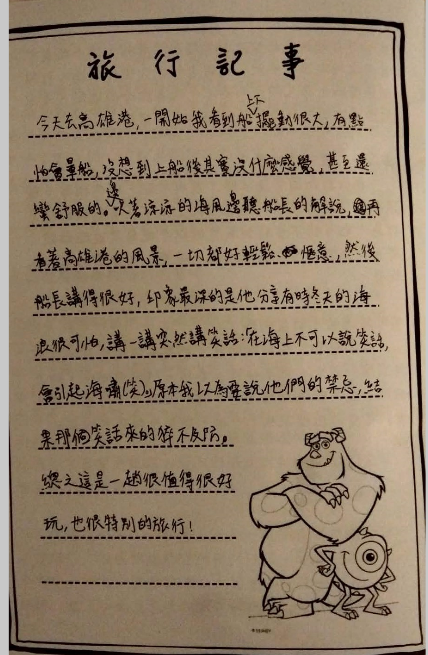 旅行記事
今天去高雄港,一開始我看到船上下擺動很大,有點
怕會暈船,沒想到上船後其實沒什麼感覺,甚至還
蠻舒服的。邊吹著涼涼的海風邊聽船長的解說,再
看著高雄港的風景,一切都好輕鬆愜意,然後
船長講得很好,印象最深的是他分享有時冬天的海
浪很可怕,講一講突然講笑話:「在海上不可以說笑話,
會引起海嘯(笑)」原本我以為要說他們的禁忌,結
果那個笑話來的猝不及防。
總之這是一趟很值得很好
玩,也很特別的旅行!